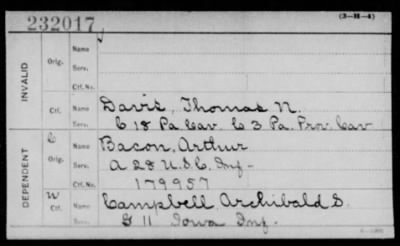 232017
(3-M-4)
INVALID
Orig.
Name
Serv.
Ctf. No.
Ctf.
Name Davis, Thomas N.
Serv. C 18 Pa Cav. C 3 Pa. Prov. Cav
DEPENDENT
C
Orig.
Name Bacon, Arthur
Serv. A 28 U.S.C. Inf-
Ctf. No. 179957
W
Ctf.
Name Campbell, Archibald S.
Serv. G 11 Iowa Inf.